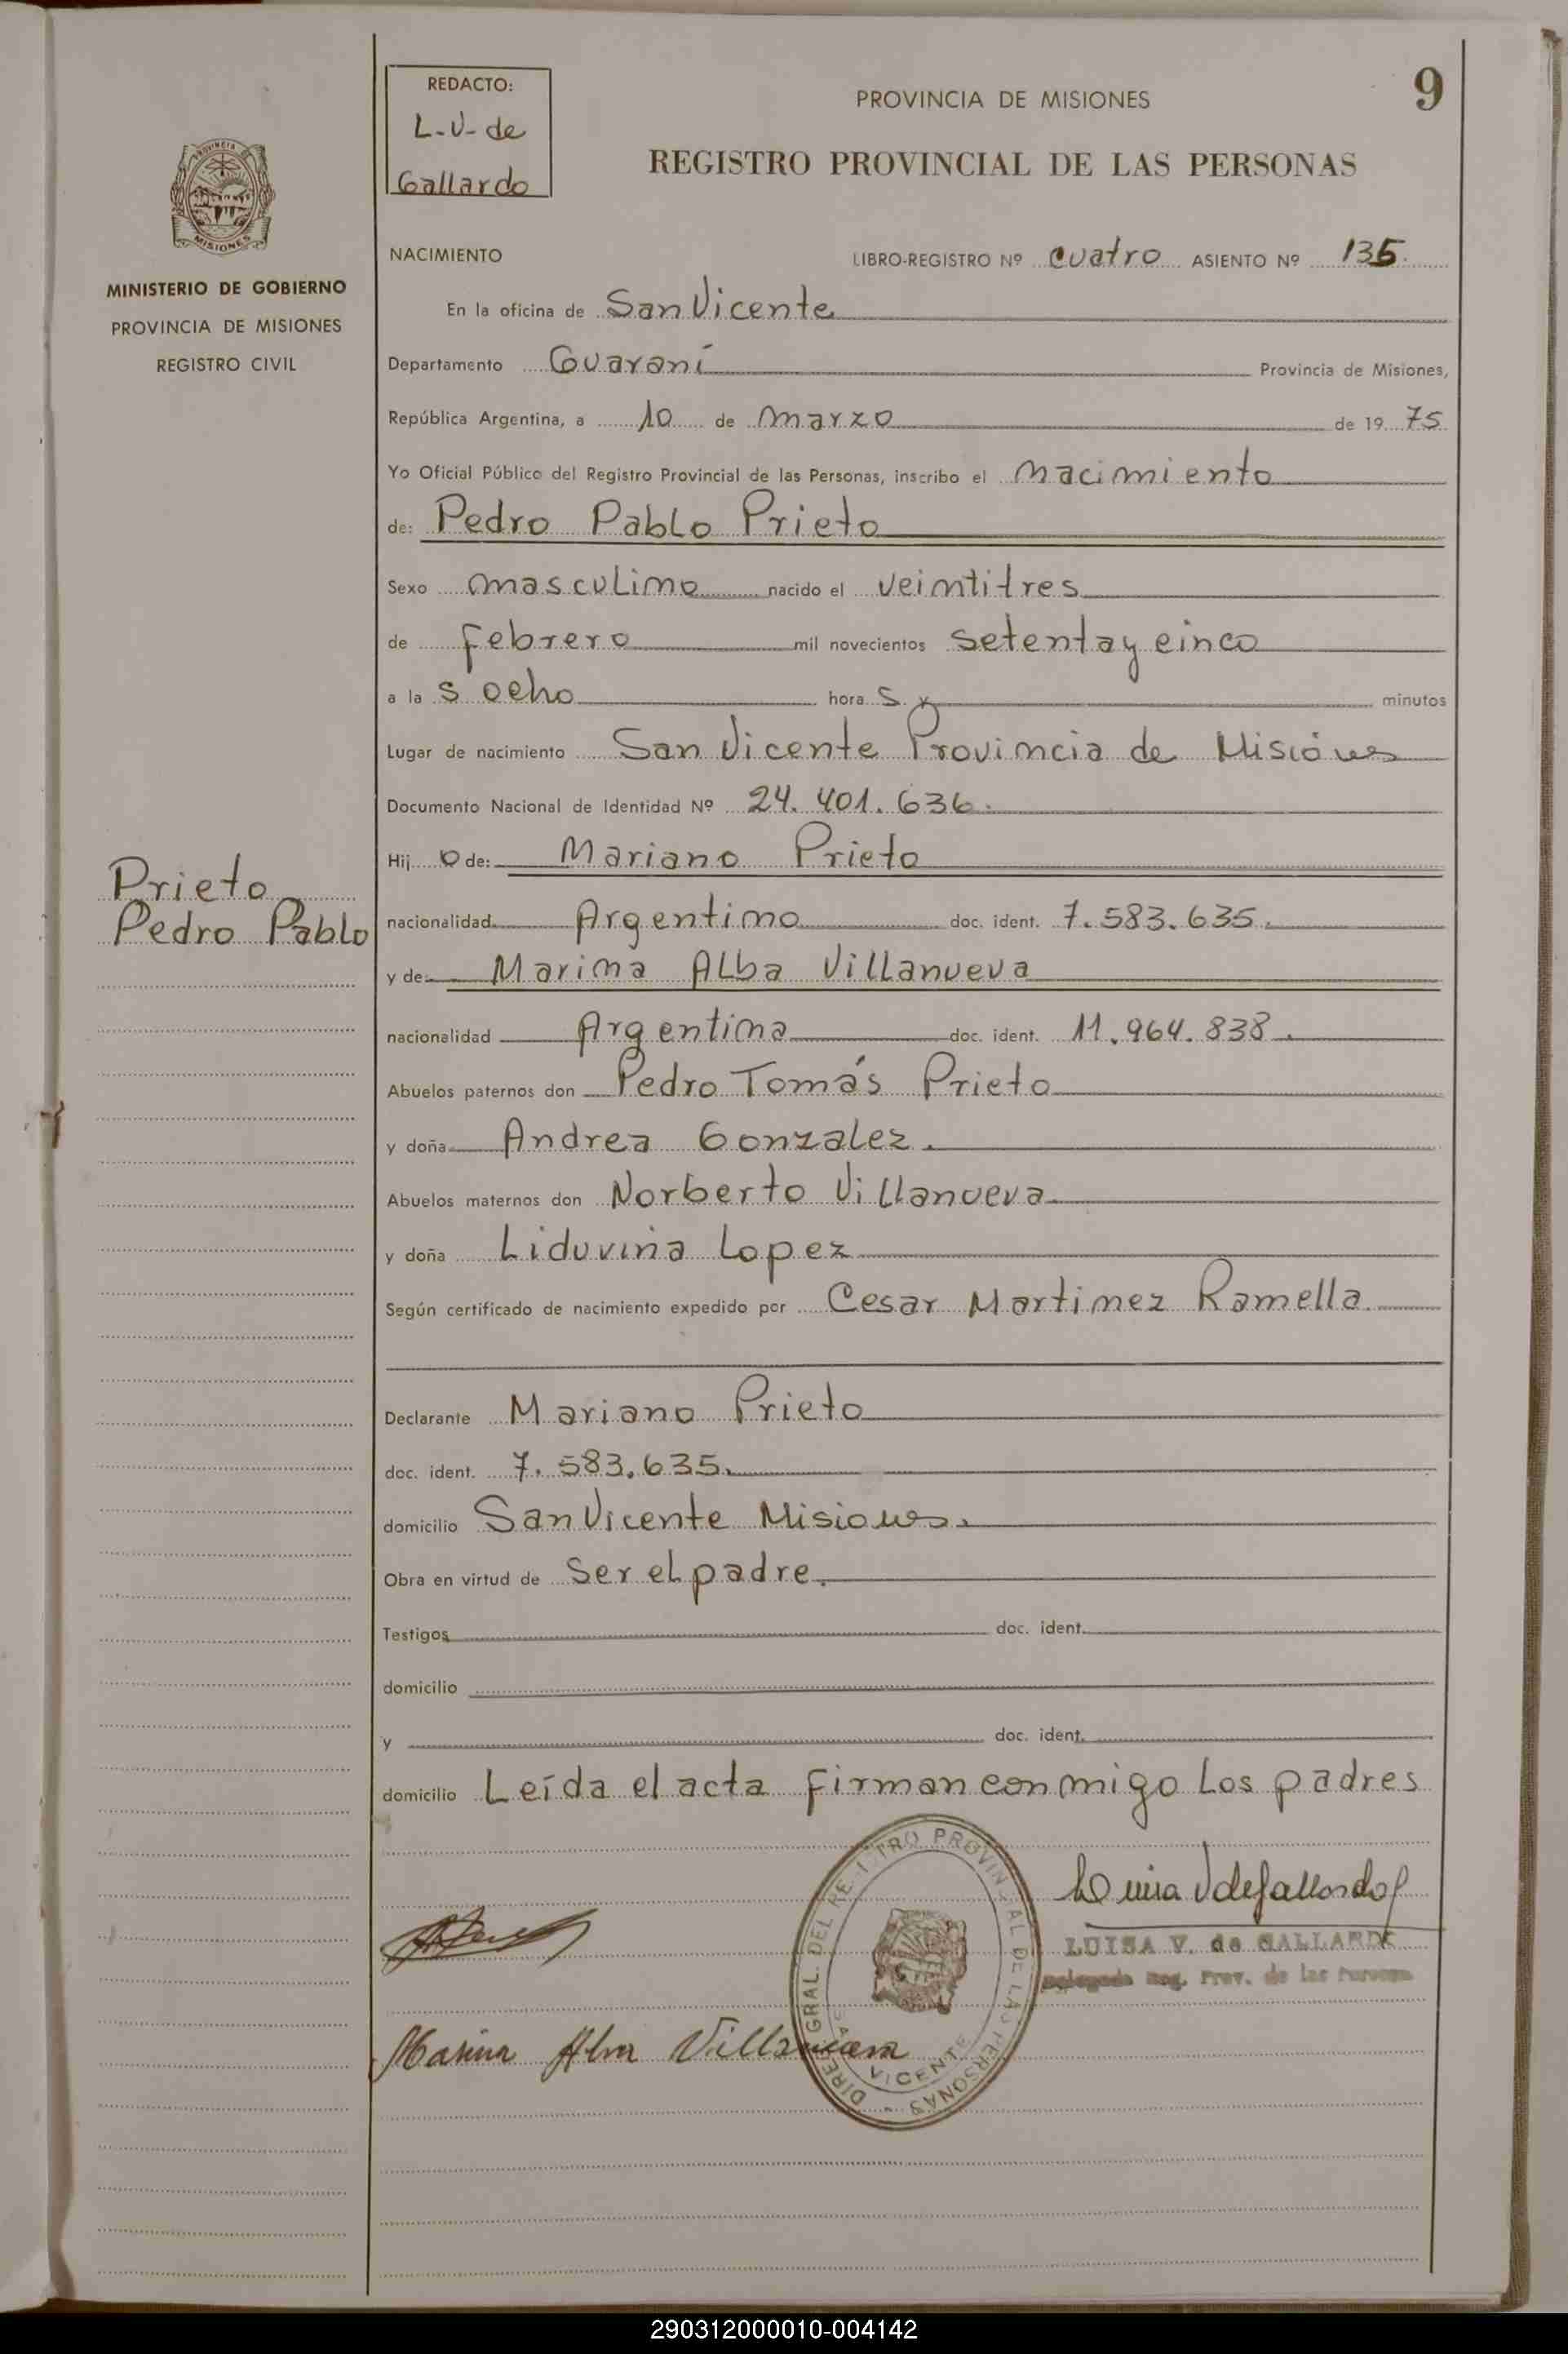 9
REDACTO:
L-V-de
Gallardo
PROVINCIA DE MISIONES
REGISTRO PROVINCIAL DE LAS PERSONAS
PROVINCIA DE
MISIONES
MINISTERIO DE GOBIERNO
PROVINCIA DE MISIONES
REGISTRO CIVIL
NACIMIENTO LIBRO-REGISTRO Nº cuatro ASIENTO Nº 135
En la oficina de San Vicente
Departamento Guaraní Provincia de Misiones,
República Argentina, a 10 de marzo de 1975
Yo Oficial Público del Registro Provincial de las Personas, inscribo el nacimiento
de: Pedro Pablo Prieto
Sexo masculino nacido el veintitres
de febrero mil novecientos setenta y cinco
a las ocho horas y minutos
Lugar de nacimiento San Vicente Provincia de Misiónes
Documento Nacional de Identidad Nº 24.401.636.
Hijo de: Mariano Prieto
Prieto
Pedro Pablo
nacionalidad Argentino doc. ident. 7.583.635.
y de Marina Alba Villanueva
nacionalidad Argentina doc. ident. 11.964.838.
Abuelos paternos don Pedro Tomás Prieto
y doña Andrea Gonzalez.
Abuelos maternos don Norberto Villanueva
y doña Liduvina Lopez
Según certificado de nacimiento expedido por Cesar Martinez Ramella
Declarante Mariano Prieto
doc. ident. 7.583.635.
domicilio San Vicente Misiones.
Obra en virtud de ser el padre.
Testigos doc. ident.
domicilio
y doc. ident.
domicilio Leída el acta firman conmigo los padres
Luisa V de Gallardo
LUISA V. de GALLARDO
Delegada Reg. Prov. de las Personas
DIRE GRAL. DEL REGISTRO PROVINCIAL DE LAS PERSONAS
SAN VICENTE
Marina Alva Villanueva
290312000010-004142